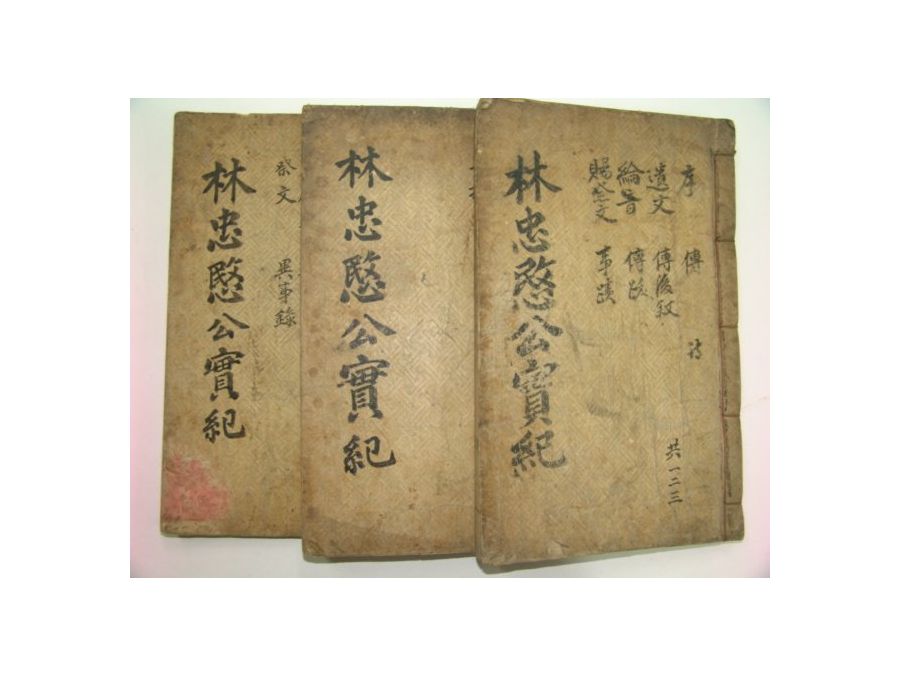 林忠愍公實紀
祭文 異事錄
林忠愍公實紀
序 傳 詩
遺文 傳後敍
綸音 傳跋
賜祭文 事蹟
林忠愍公實紀
共一二三